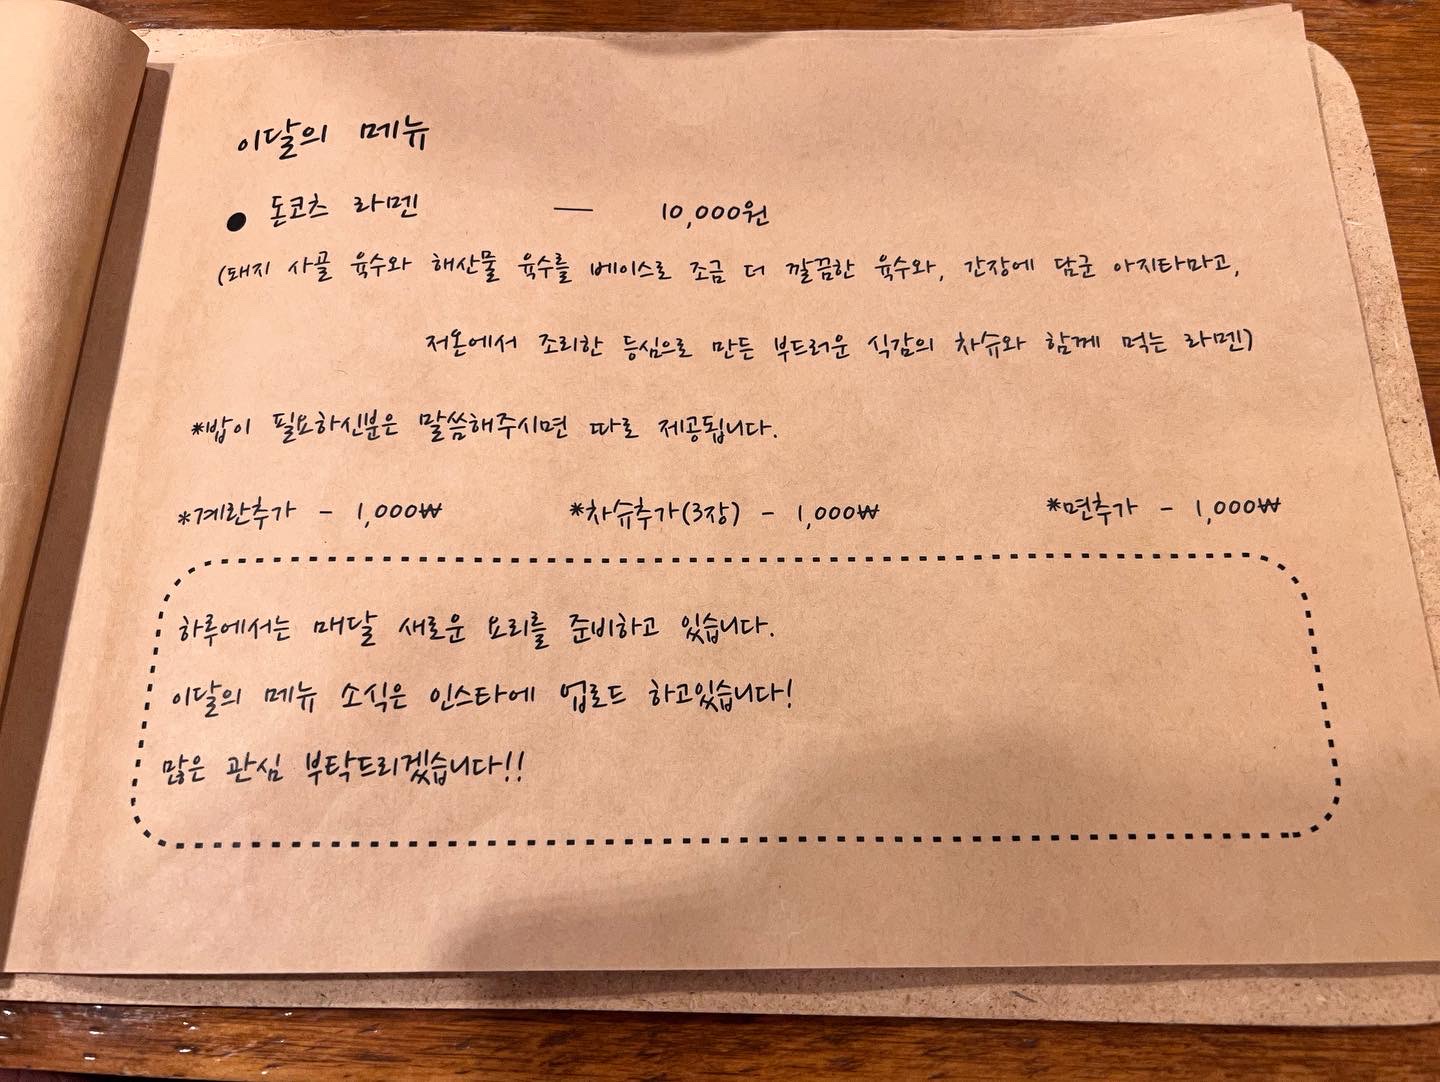 이달의 메뉴
● 돈코츠 라멘 — 10,000원
(돼지 사골 육수와 해산물 육수를 베이스로 조금 더 깔끔한 육수와, 간장에 담군 아지타마고,
저온에서 조리한 등심으로 만든 부드러운 식감의 차슈와 함께 먹는 라멘)
*밥이 필요하신분은 말씀해주시면 따로 제공됩니다.
*계란추가 - 1,000₩ *차슈추가(3장) - 1,000₩ *면추가 - 1,000₩
하루에서는 매달 새로운 요리를 준비하고 있습니다.
이달의 메뉴 소식은 인스타에 업로드 하고있습니다!
많은 관심 부탁드리겠습니다!!